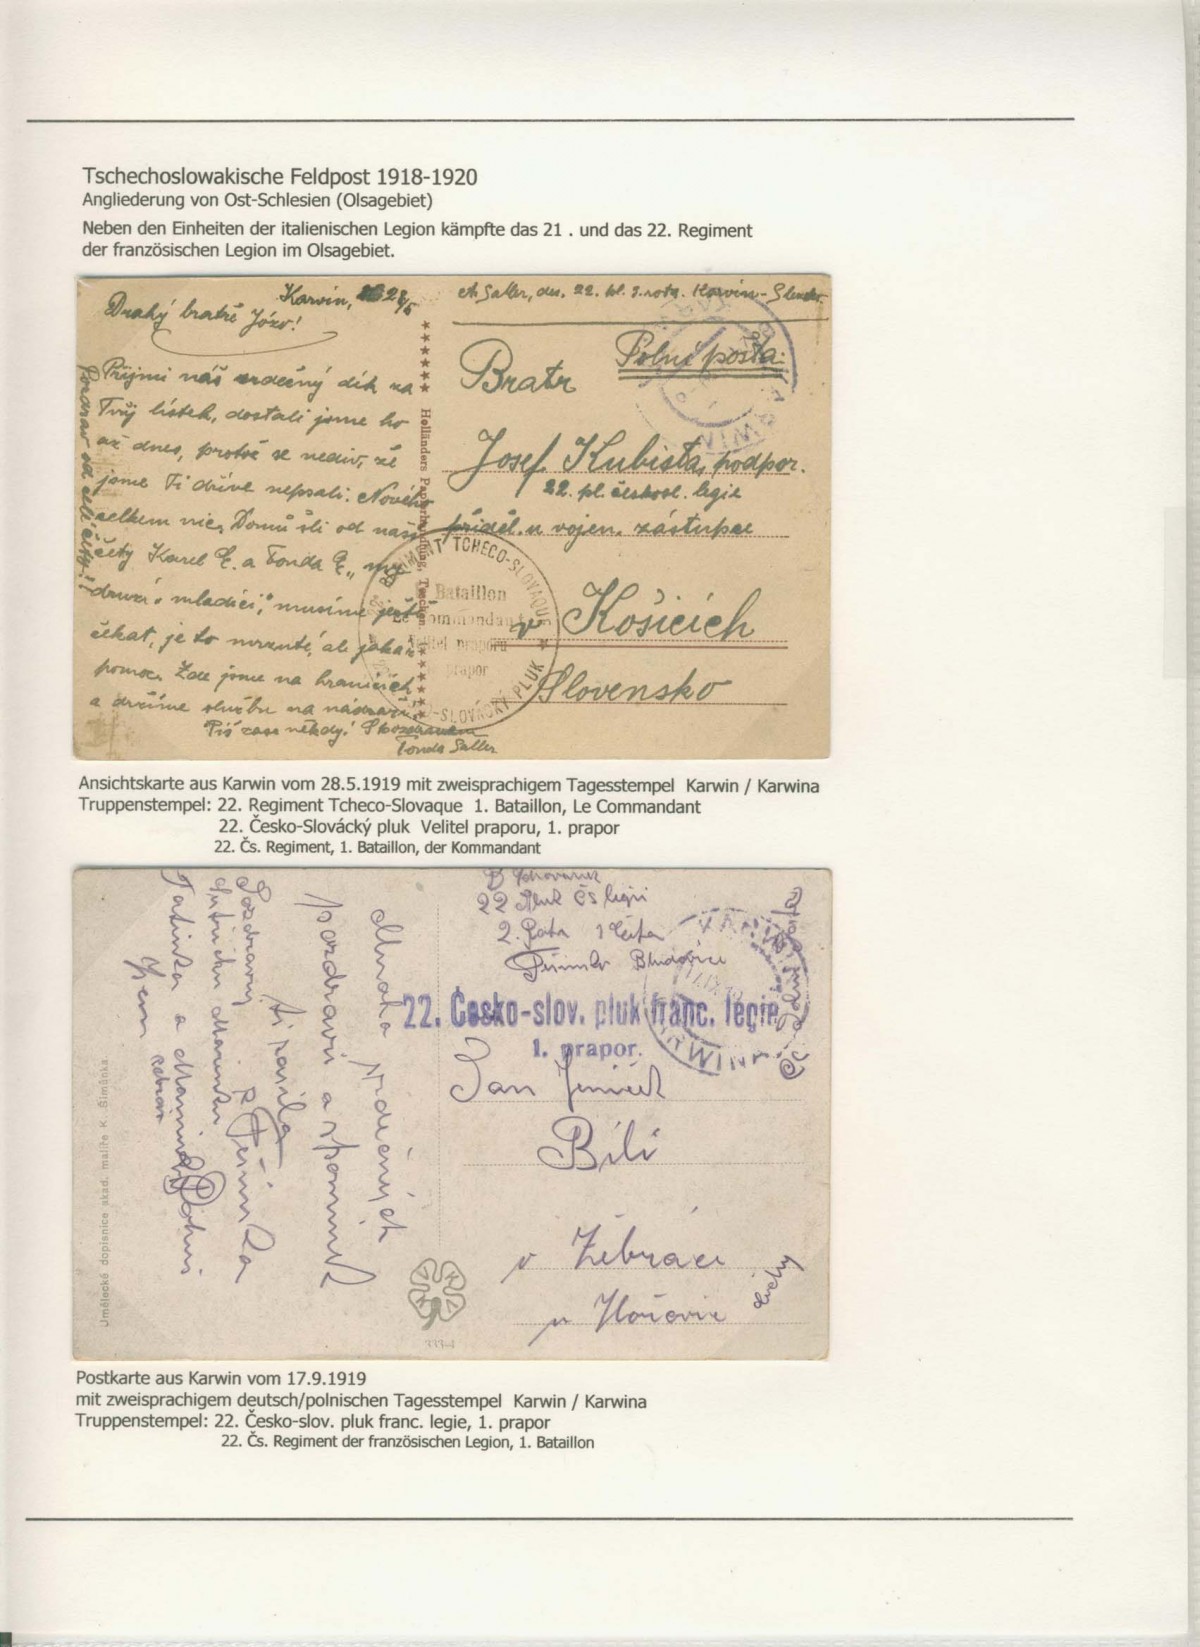 Tschechoslowakische Feldpost 1918-1920
Angliederung von Ost-Schlesien (Olsagebiet)
Neben den Einheiten der italienischen Legion kämpfte das 21 . und das 22. Regiment
der französischen Legion im Olsagebiet.
Karvin, 28/5
Drahý bratře Józo!
Přijmi náš srdečný dík za
Tvůj lístek, dostali jsme ho
až dnes, protož se nediv, že
jsme Ti dříve nepsali. Nového
celkem nic. Domů šli od naší
čety Karel
a Tonda
my
druzí "mladíci", musíme ještě
čekat, je to mrzuté, al jaká
pomoc. Zde jsme na hranicích
a držíme službu na nádraží.
Piš zase někdy! S pozdravem
Tonda Saller
Pozdrav od celé čety!
Holländers Papierhandlung, Teschen
A. Saller, čes. 22. pl. 3. rota. Karvin-
Polní pošta:
Bratr
Josef Kubista, podpor.
22. pl. českosl. legie
přiděl. u vojen. zástupce
v Košicích
Slovensko
22e REGIMENT TCHECO-SLOVAQUE
Bataillon
Le Commandant
Velitel praporu
prapor
-SLOVÁCKÝ PLUK
KARWIN
Ansichtskarte aus Karwin vom 28.5.1919 mit zweisprachigem Tagesstempel Karwin / Karwina
Truppenstempel: 22. Regiment Tcheco-Slovaque 1. Bataillon, Le Commandant
22. Česko-Slovácký pluk Velitel praporu, 1. prapor
22. Čs. Regiment, 1. Bataillon, der Kommandant
22 Pluk Čs legii
2. Rota 1 četa
Bludovice
Polní pošta
KARWIN
KARWINA
22. Česko-slov. pluk franc. legie
1. prapor.
Jan Jeníček
Bílí
v Žebráce
u Hořovic
Čechy
Mnoho srdečných
pozdravů a vzpomínek
Ti posílá
Pozdravuj
Tatínka a Maminku
Umělecké dopisnice akad. malíře K. Šimůnka
333-4
Postkarte aus Karwin vom 17.9.1919
mit zweisprachigem deutsch/polnischen Tagesstempel Karwin / Karwina
Truppenstempel: 22. Česko-slov. pluk franc. legie, 1. prapor
22. Čs. Regiment der französischen Legion, 1. Bataillon